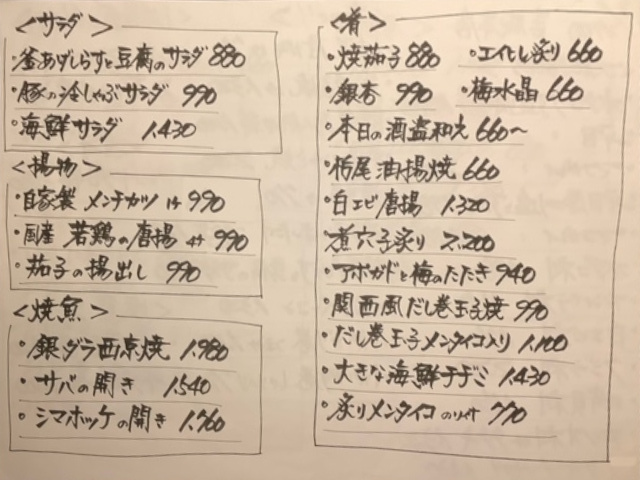 <サラダ>
・釜あげしらすと豆腐のサラダ 880
・豚の冷しゃぶサラダ 990
・海鮮サラダ 1,430
<揚物>
・自家製 メンチカツ 1ケ 990
・国産 若鶏の唐揚 4ケ 990
・茄子の揚出し 990
<焼魚>
・銀ダラ西京焼 1,980
・サバの開き 1,540
・シマホッケの開き 1,760
<肴>
・焼茄子 880 ・エイヒレ炙り 660
・銀杏 990 ・梅水晶 660
・本日の酒盗和え 660〜
・栃尾油揚焼 660
・白エビ唐揚 1,320
・煮穴子炙り 2,200
・アボガドと梅のたたき 940
・関西風だし巻玉子焼 990
・だし巻玉子メンタイコ入り 1,100
・大きな海鮮チヂミ 1,430
・炙りメンタイコ 770